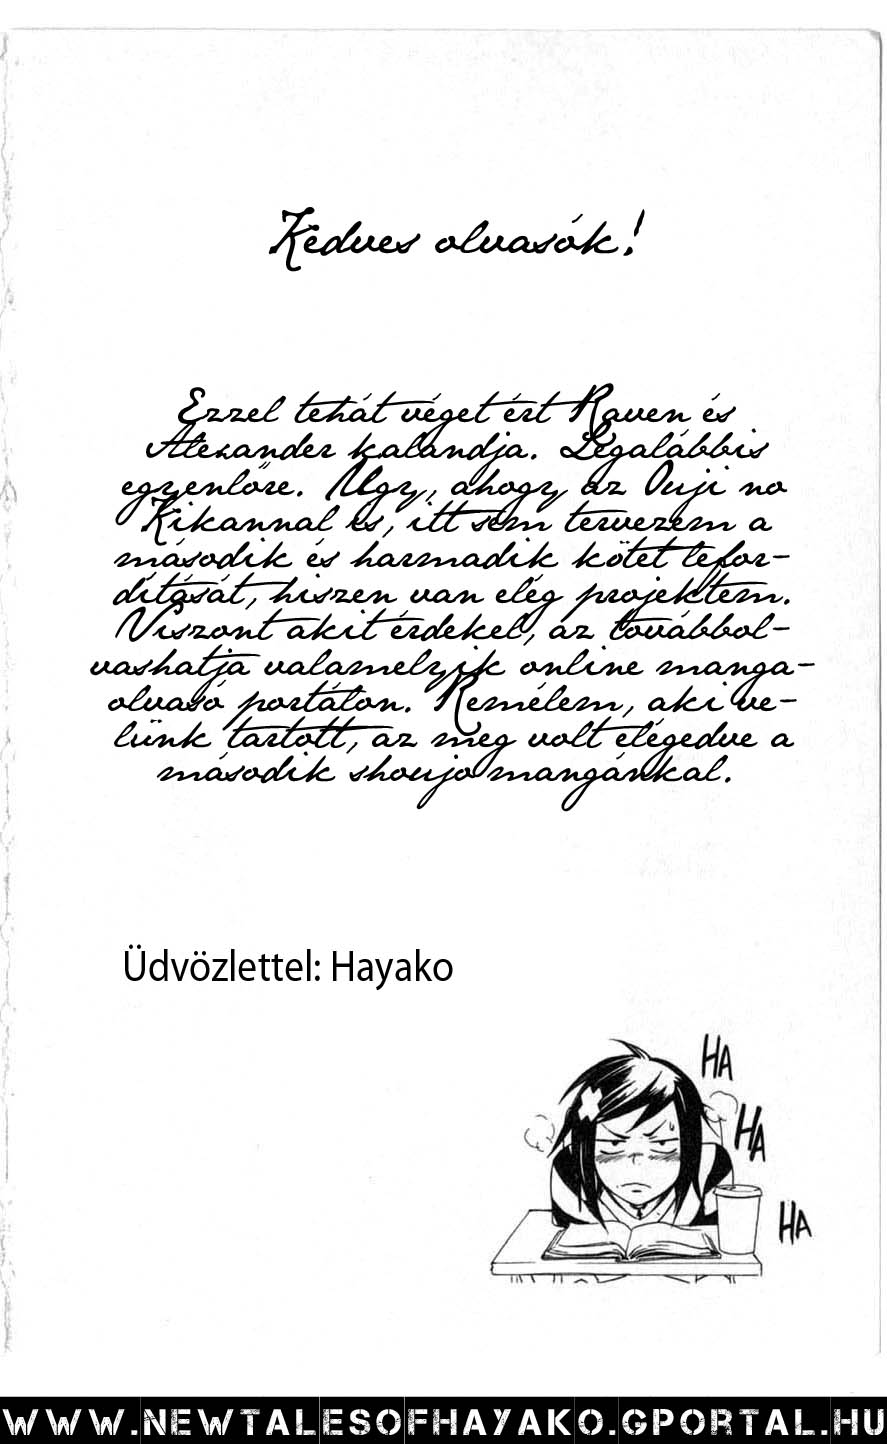 Kedves olvasók!
Ezzel tehát véget ért Raven és
Alexander kalandja. Legalábbis
egyenlőre. Úgy, ahogy az Ouji no
Kikannal is, itt sem tervezem a
második és harmadik kötet lefor-
dítását, hiszen van elég projektem.
Viszont akit érdekel, az továbbol-
vashatja valamelyik online manga-
olvasó portálon. Remélem, aki ve-
lünk tartott, az meg volt elégedve a
második shoujo mangánkal.
Üdvözlettel: Hayako
HA
HA
HA
WWW.NEWTALESOFHAYAKO.GPORTAL.HU